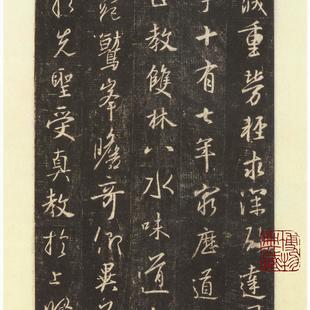 誠重勞輕求深願達
宇十有七年窮歷道
正教雙林八水味道
苑鷲峯瞻奇仰異
於先聖受真教於上賢